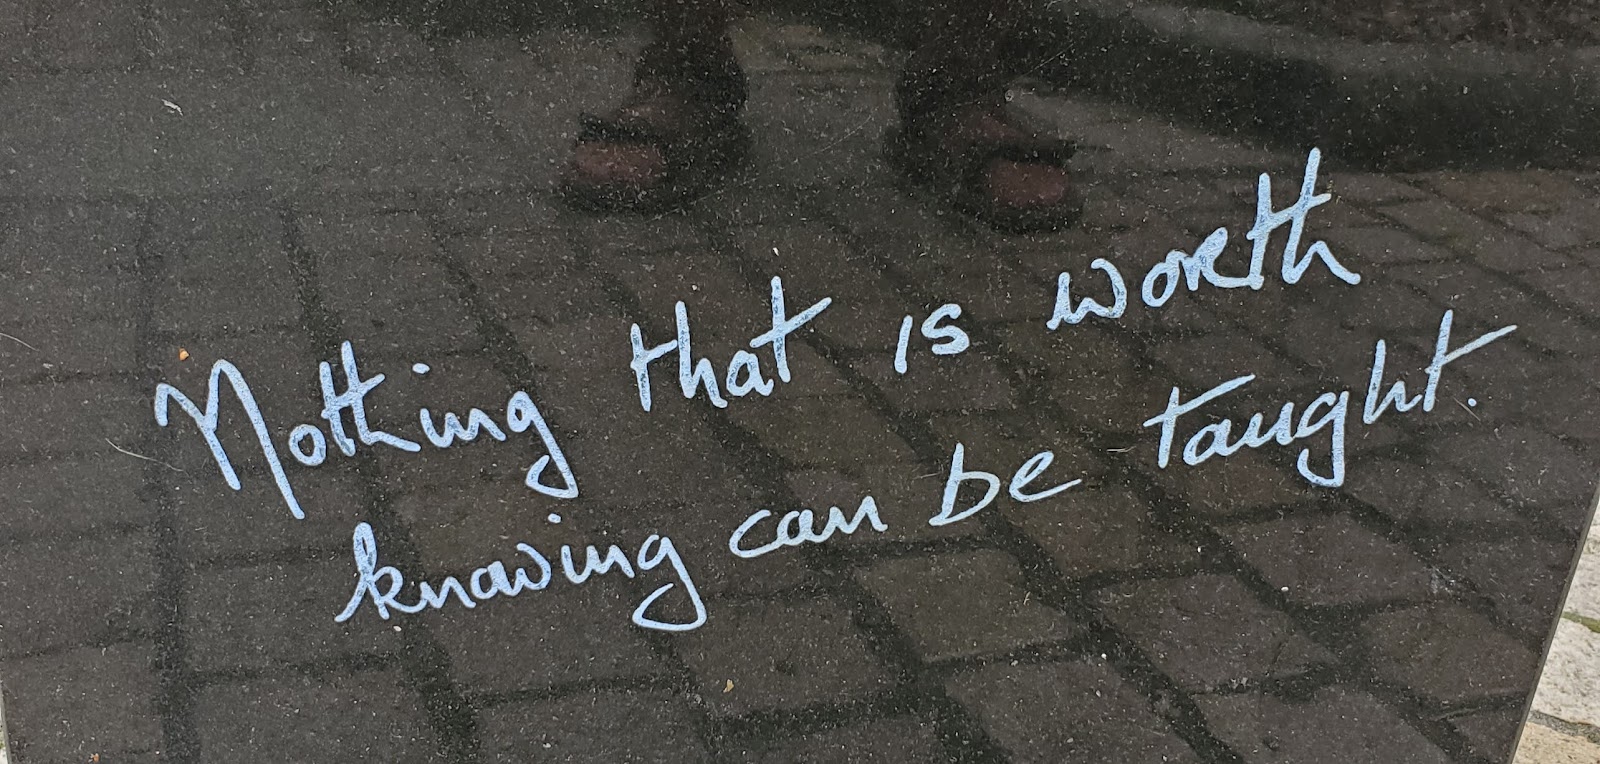 Nothing that is worth
knowing can be taught.